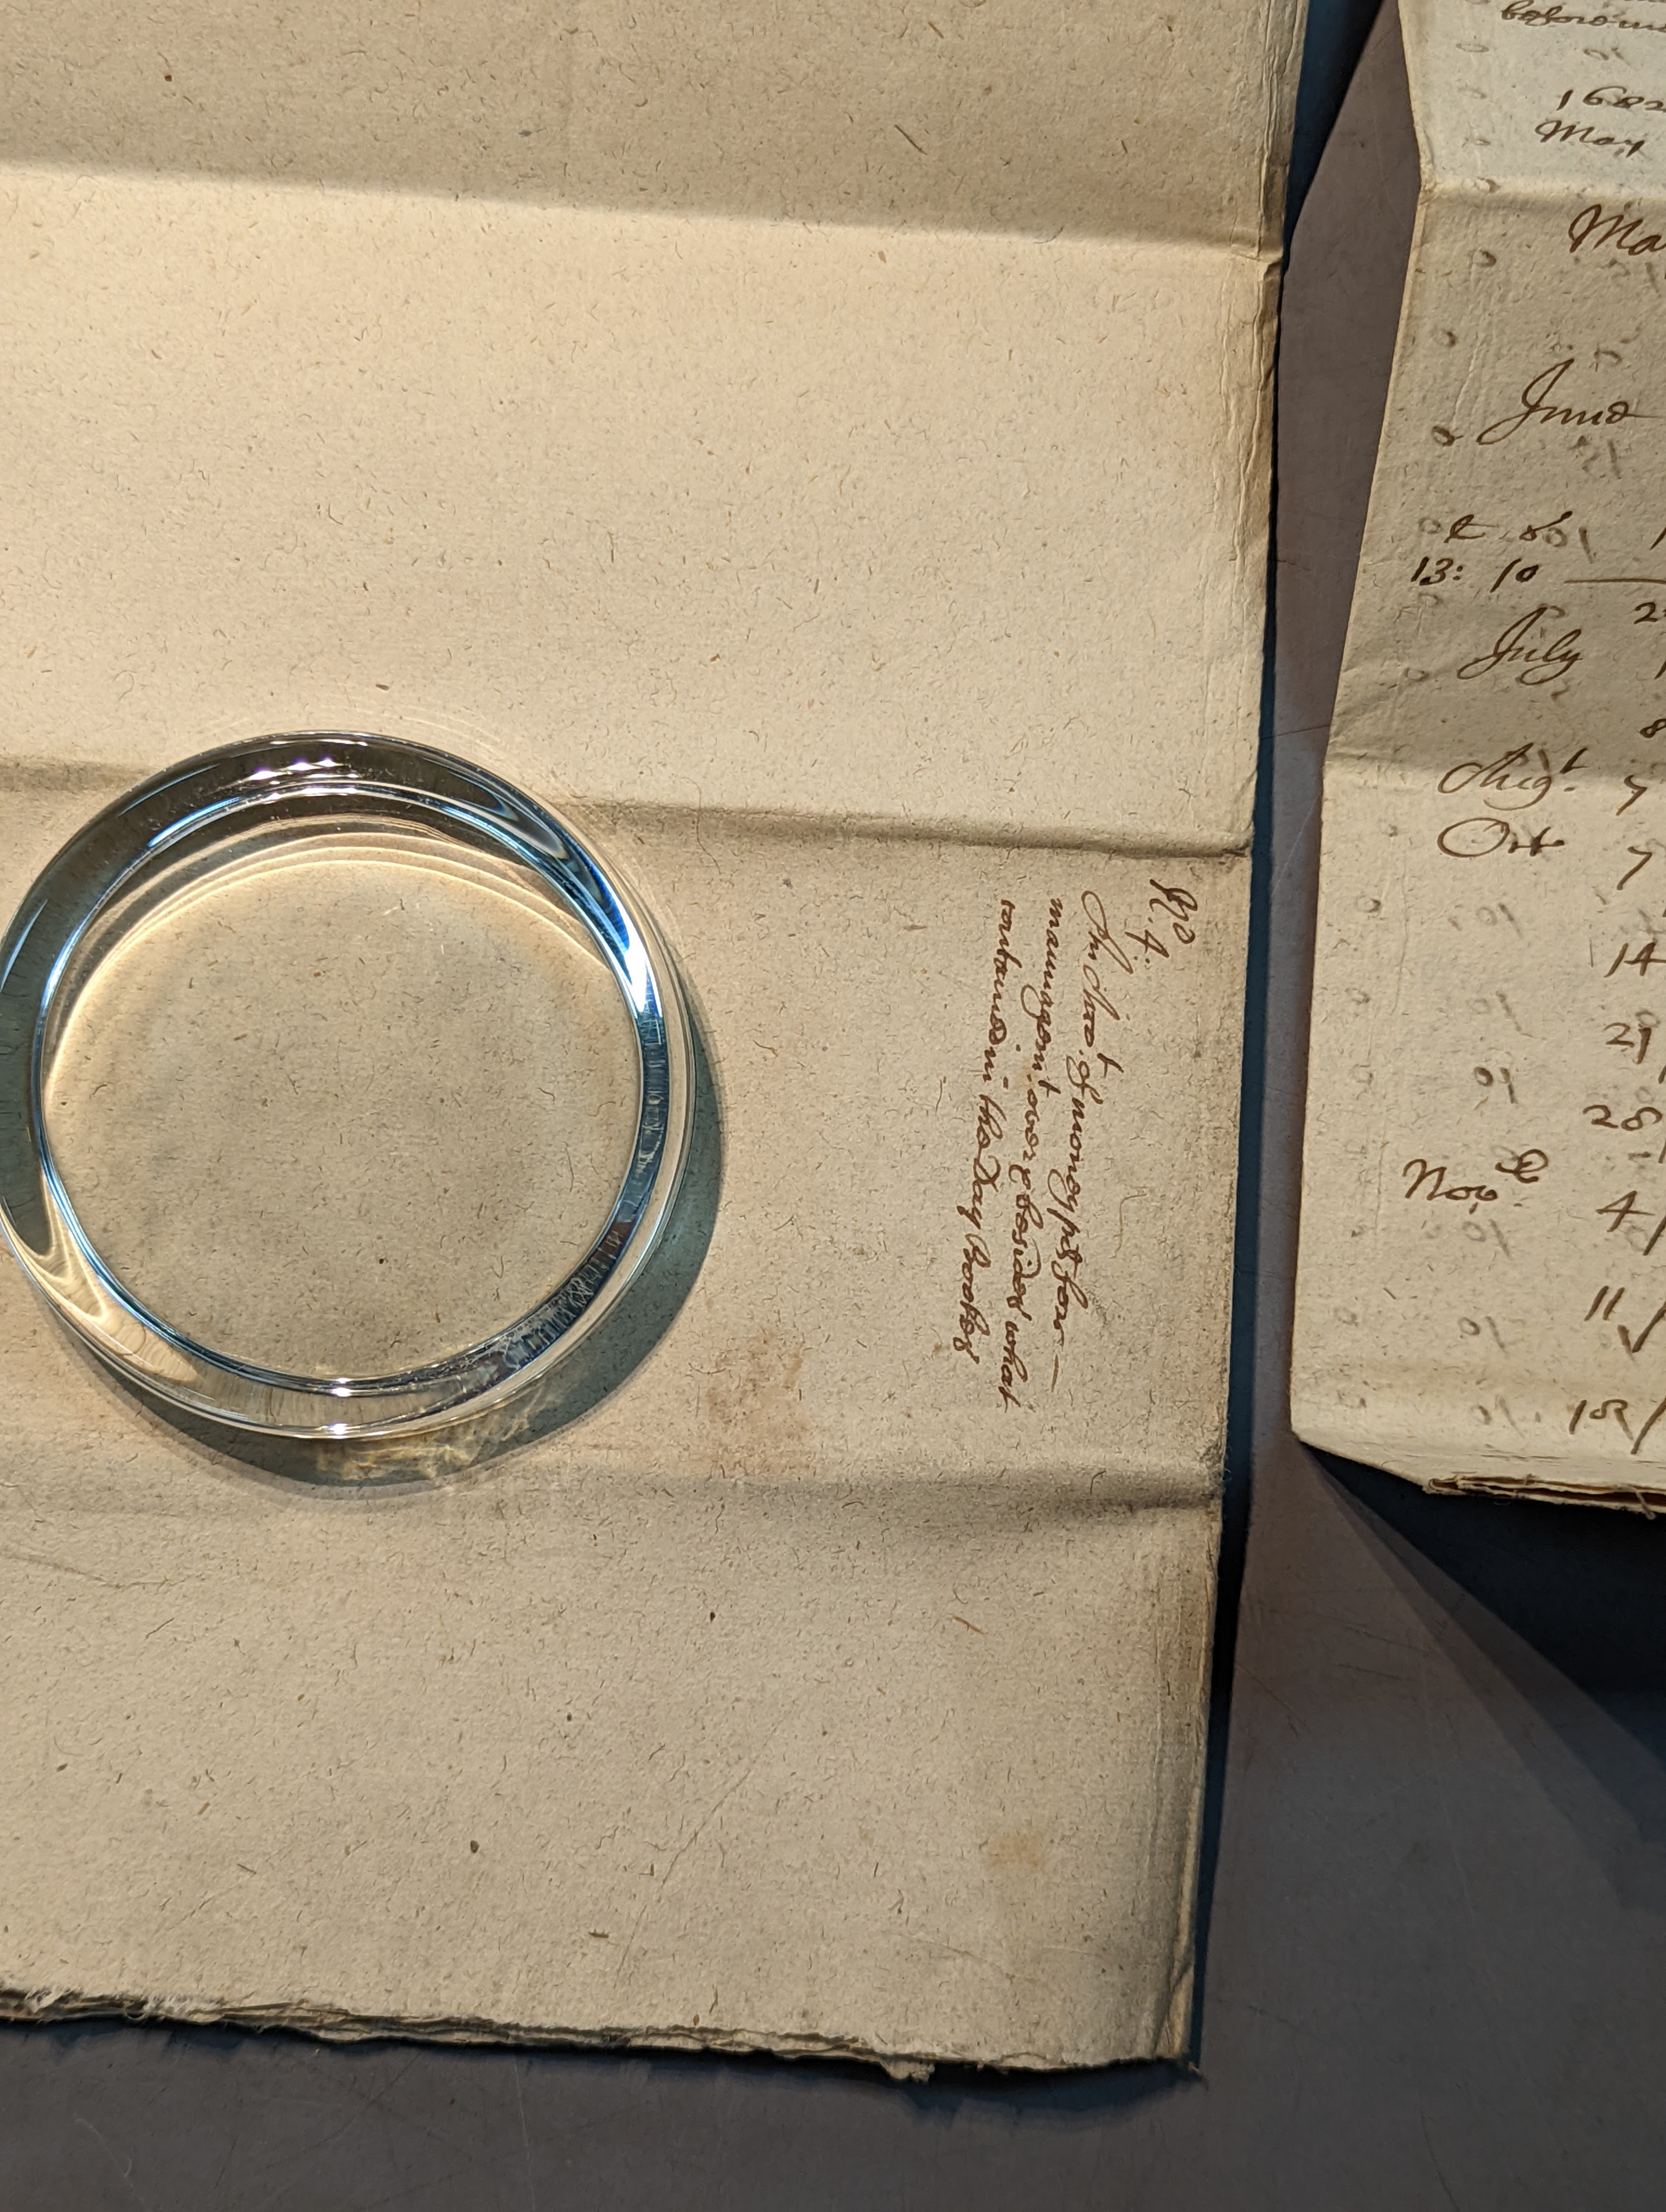 No
N. 4.
An Accot. of money pd for —
mannagemt. over & besides what
contained in the Day Bookes
before
1682
May
Ma
June
13: 10
2
July
8
Augt. 7
Octo 7
14
21
28
Novr. 4
11
18